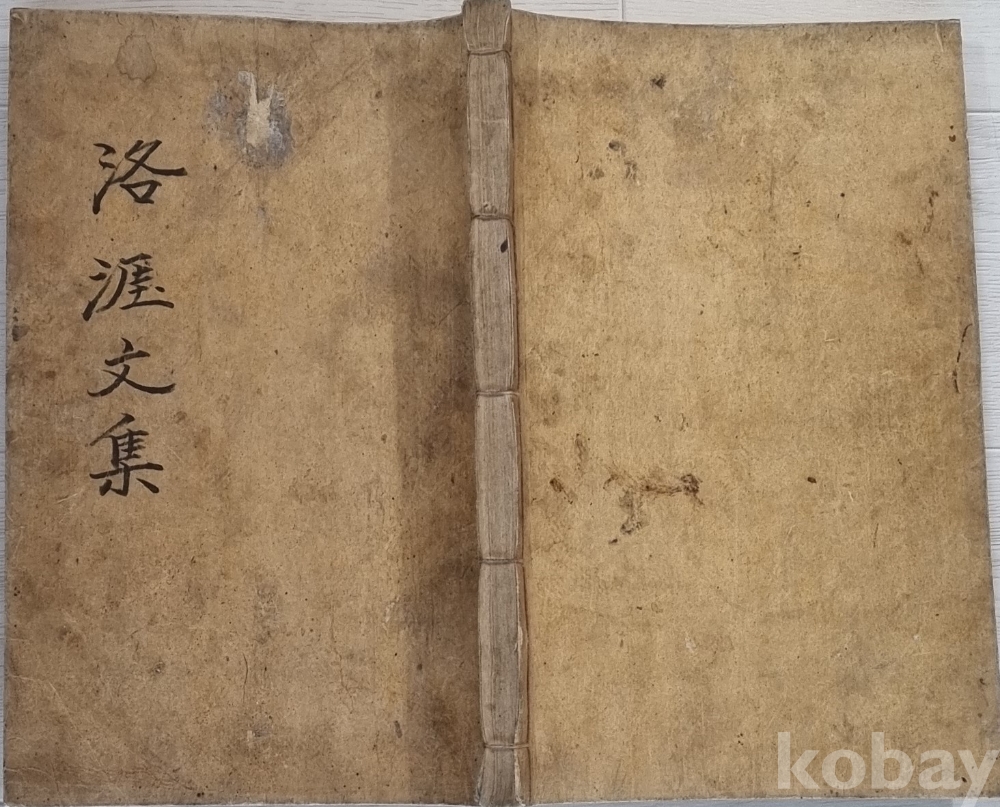 洛涯文集
kobay